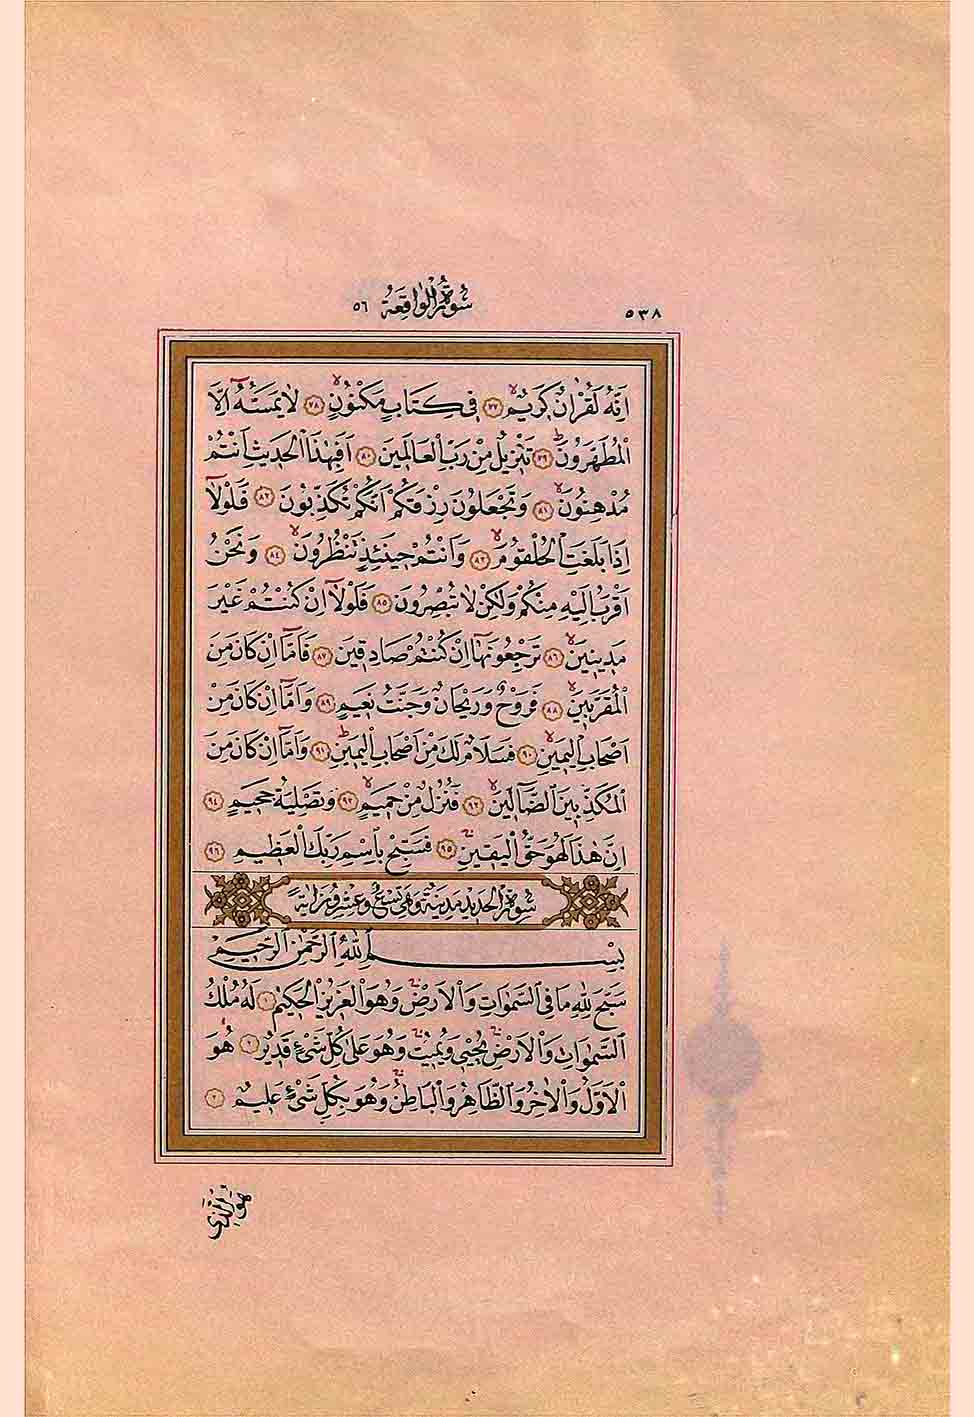 ٥٣٨
سُورَةُ الْوَاقِعَةِ ٥٦
اِنَّهُ لَقُرْاٰنٌ كَر۪يمٌۙ ﴿٧٧﴾ ف۪ي كِتَابٍ مَكْنُونٍۙ ﴿٧٨﴾ لَا يَمَسُّهُٓ اِلَّا
الْمُطَهَّرُونَۜ ﴿٧٩﴾ تَنْز۪يلٌ مِنْ رَبِّ الْعَالَم۪ينَ ﴿٨٠﴾ اَفَبِهٰذَا الْحَد۪يثِ اَنْتُمْ
مُدْهِنُونَۙ ﴿٨١﴾ وَتَجْعَلُونَ رِزْقَكُمْ اَنَّكُمْ تُكَذِّبُونَ ﴿٨٢﴾ فَلَوْلَٓا
اِذَا بَلَغَتِ الْحُلْقُومَۙ ﴿٨٣﴾ وَاَنْتُمْ ح۪ينَئِذٍ تَنْظُرُونَۙ ﴿٨٤﴾ وَنَحْنُ
اَقْرَبُ اِلَيْهِ مِنْكُمْ وَلٰكِنْ لَا تُبْصِرُونَ ﴿٨٥﴾ فَلَوْلَٓا اِنْ كُنْتُمْ غَيْرَ
مَد۪ين۪ينَۙ ﴿٨٦﴾ تَرْجِعُونَهَٓا اِنْ كُنْتُمْ صَادِق۪ينَ ﴿٨٧﴾ فَاَمَّٓا اِنْ كَانَ مِنَ
الْمُقَرَّب۪ينَۙ ﴿٨٨﴾ فَرَوْحٌ وَرَيْحَانٌ وَجَنَّتُ نَع۪يمٍ ﴿٨٩﴾ وَاَمَّٓا اِنْ كَانَ مِنْ
اَصْحَابِ الْيَم۪ينِۙ ﴿٩٠﴾ فَسَلَامٌ لَكَ مِنْ اَصْحَابِ الْيَم۪ينِۜ ﴿٩١﴾ وَاَمَّٓا اِنْ كَانَ مِنَ
الْمُكَذِّب۪ينَ الضَّٓالّ۪ينَۙ ﴿٩٢﴾ فَنُزُلٌ مِنْ حَم۪يمٍۙ ﴿٩٣﴾ وَتَصْلِيَةُ جَح۪يمٍ ﴿٩٤﴾
اِنَّ هٰذَا لَهُوَ حَقُّ الْيَق۪ينِۚ ﴿٩٥﴾ فَسَبِّحْ بِاسْمِ رَبِّكَ الْعَظ۪يمِ ﴿٩٦﴾
سُورَةُ الْحَدِيدِ مَدَنِيَّةٌ وَهِيَ تِسْعٌ وَعِشْرُونَ اٰيَةً
بِسْمِ اللّٰهِ الرَّحْمٰنِ الرَّح۪يمِ
سَبَّحَ لِلّٰهِ مَا فِي السَّمٰوَاتِ وَالْاَرْضِۚ وَهُوَ الْعَز۪يزُ الْحَك۪يمُ ﴿١﴾ لَهُ مُلْكُ
السَّمٰوَاتِ وَالْاَرْضِۚ يُحْـي۪ وَيُم۪يتُۚ وَهُوَ عَلٰى كُلِّ شَيْءٍ قَد۪يرٌ ﴿٢﴾ هُوَ
الْاَوَّلُ وَالْاٰخِرُ وَالظَّاهِرُ وَالْبَاطِنُۚ وَهُوَ بِكُلِّ شَيْءٍ عَل۪يمٌ ﴿٣﴾
هُوَ الَّذ۪ي